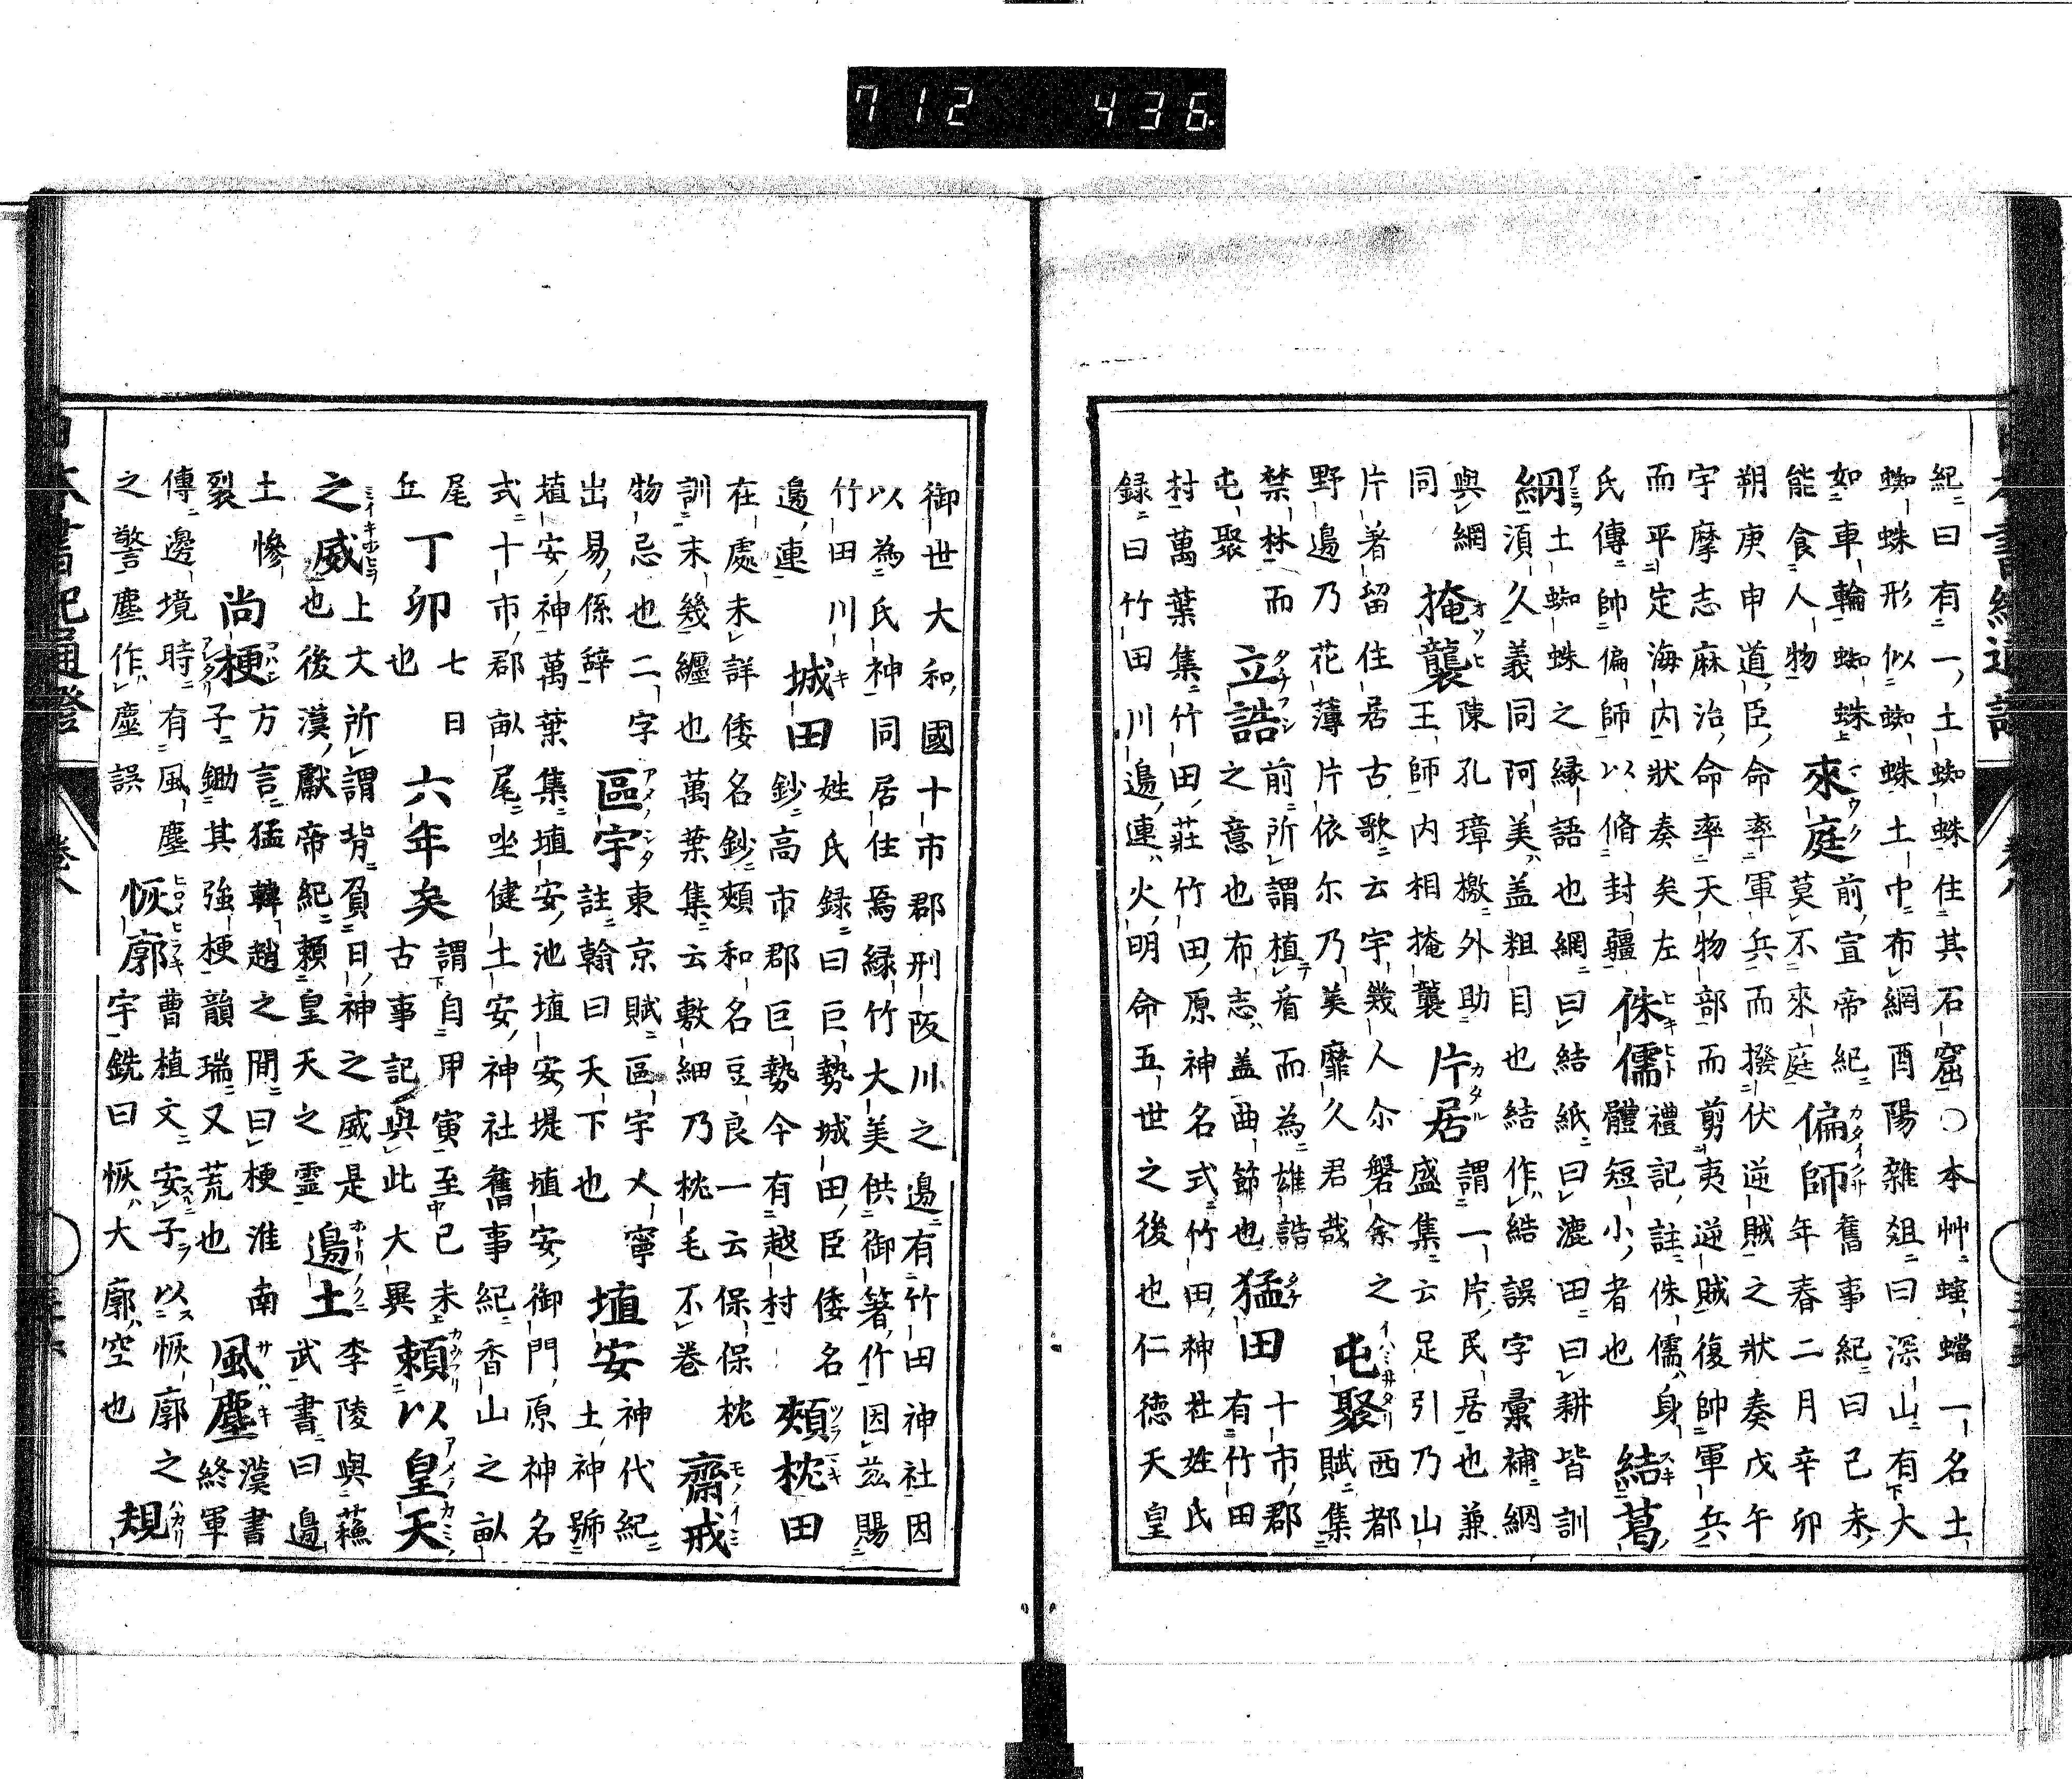 712 436
紀曰有一土蜘蛛住其石窟〇本艸蟷一名土
蜘蛛形似蜘蛛土中布網酉陽雜俎曰深山有大
如車輪蜘蛛上
能食人物
來庭
前宣帝紀
莫不來庭
偏師
舊事紀曰己未
年春二月辛卯
朔庚申道臣命率軍兵而撥伏逆賊之狀奏戊午
宇摩志麻治命率天物部而剪夷逆賊復帥軍兵
而平定海內狀奏矣左
氏傳帥偏師以脩封疆
侏儒
禮記註侏儒身
體短小者也
結葛
網
土蜘蛛之縁語也網曰結紙曰漉田曰耕皆訓
須久義同阿美盖粗目也結作結誤字彙補網
與網
同
掩襲
陳孔璋檄外助
王師內相掩襲
片居
謂一片民居也兼
盛集云足引乃山
片著留住居古歌云宇幾人尒磐余之
野邉乃花薄片依尓乃美靡久君哉
屯聚
西都
賦集
禁林而
屯聚
立誥
前所謂植者而為雄誥
之意也布志盖曲節也
猛田
十市郡
有竹田
村萬葉集竹田莊竹田原神名式竹田神社姓氏
録曰竹田川邉連火明命五世之後也仁徳天皇
御世大和國十市郡刑阪川之邉有竹田神社因
以為氏神同居住焉緑竹大美供御箸竹因茲賜
竹田川
邉連
城田
姓氏録曰巨勢城田臣倭名
鈔高市郡巨勢今有越村
頰枕田
在處未詳倭名鈔頰和名豆良一云保保枕
訓末幾纏也萬葉集云敷細乃枕毛不卷
齋戒
物忌也二字
出易係辞
區宇
東京賦區宇乂寧
註翰曰天下也
埴安
神代紀
土神號
埴安神萬葉集埴安池埴安堤埴安御門原神名
式十市郡畝尾坐健土安神社舊事紀香山之畝
尾
丘
丁卯
七日
也
六年矣
謂自甲寅至己未
古事記與此大異
頼以皇天
之威
上大所謂背負日神之威是
也後漢獻帝紀頼皇天之霊
邉土
李陵與蘓
武書曰邉
土慘
裂
尚梗
方言猛韓趙之間曰梗淮南
子鋤其強梗韻瑞又荒也
風塵
漢書
終軍
傳邊境時有風塵
之警塵作塵誤
恢廓
曹植文安子以恢廓之
宇銑曰恢大廓空也
規